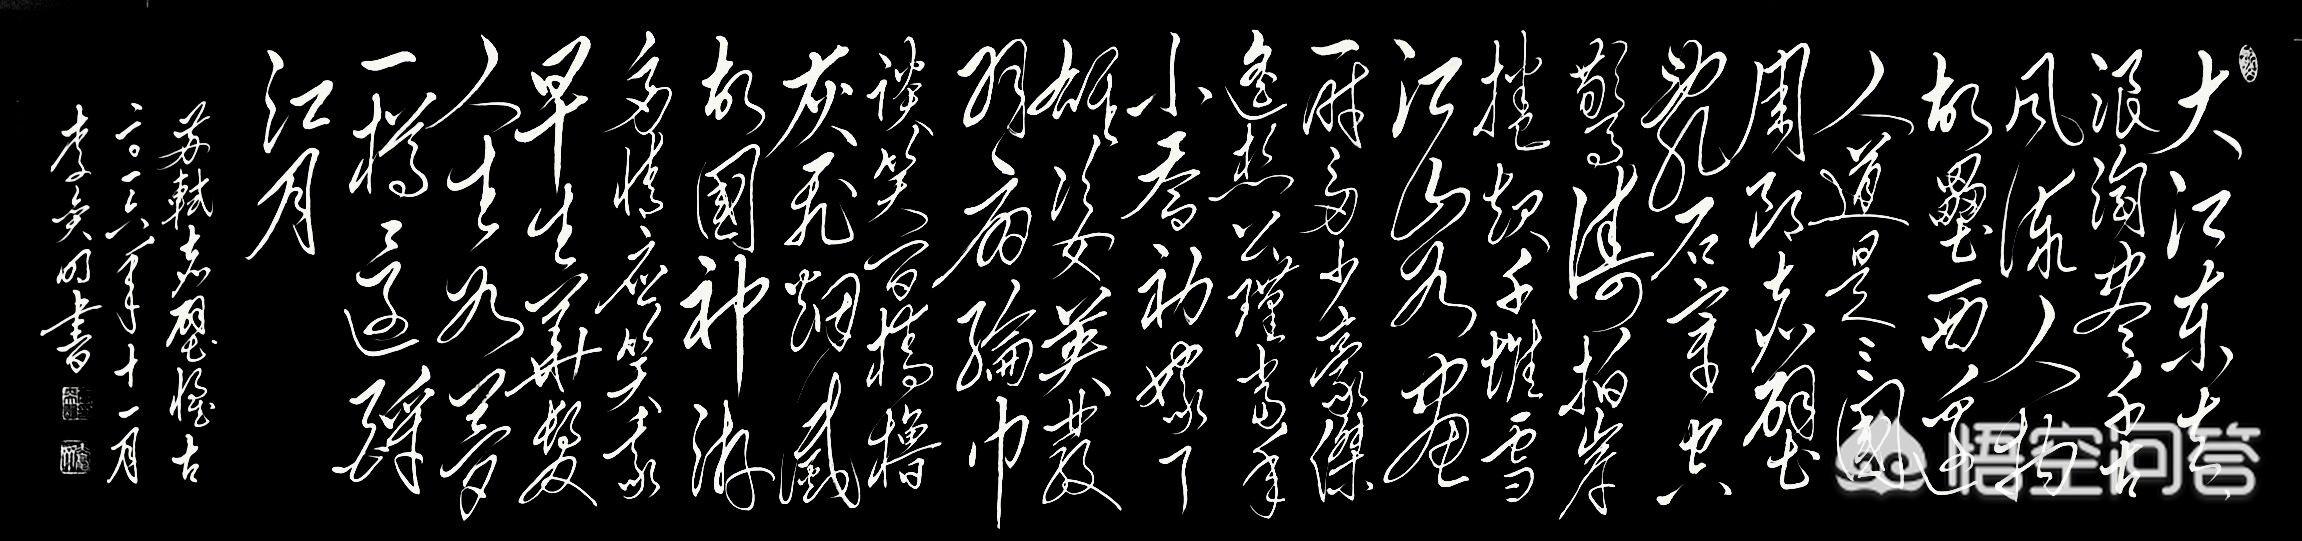 大江东去
浪淘尽千古
风流人物
故壘西边
人道是三國
周郎赤壁
乱石穿空
驚涛拍岸
捲起千堆雪
江山如画
一时多少豪傑
遥想公瑾当年
小乔初嫁了
雄姿英發
羽扇綸巾
談笑间樯櫓
灰飞烟滅
故國神游
多情应笑我
早生華髮
人生如夢
一樽还酹
江月
苏軾赤壁怀古
二〇一六年十一月
李明書
悟空问答